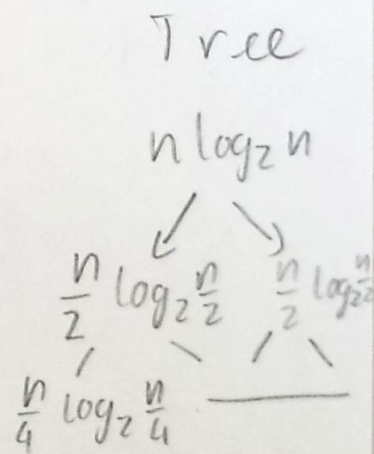 Tree
n log₂ n
n/2 log₂ n/2 n/2 log₂ n/2
n/4 log₂ n/4